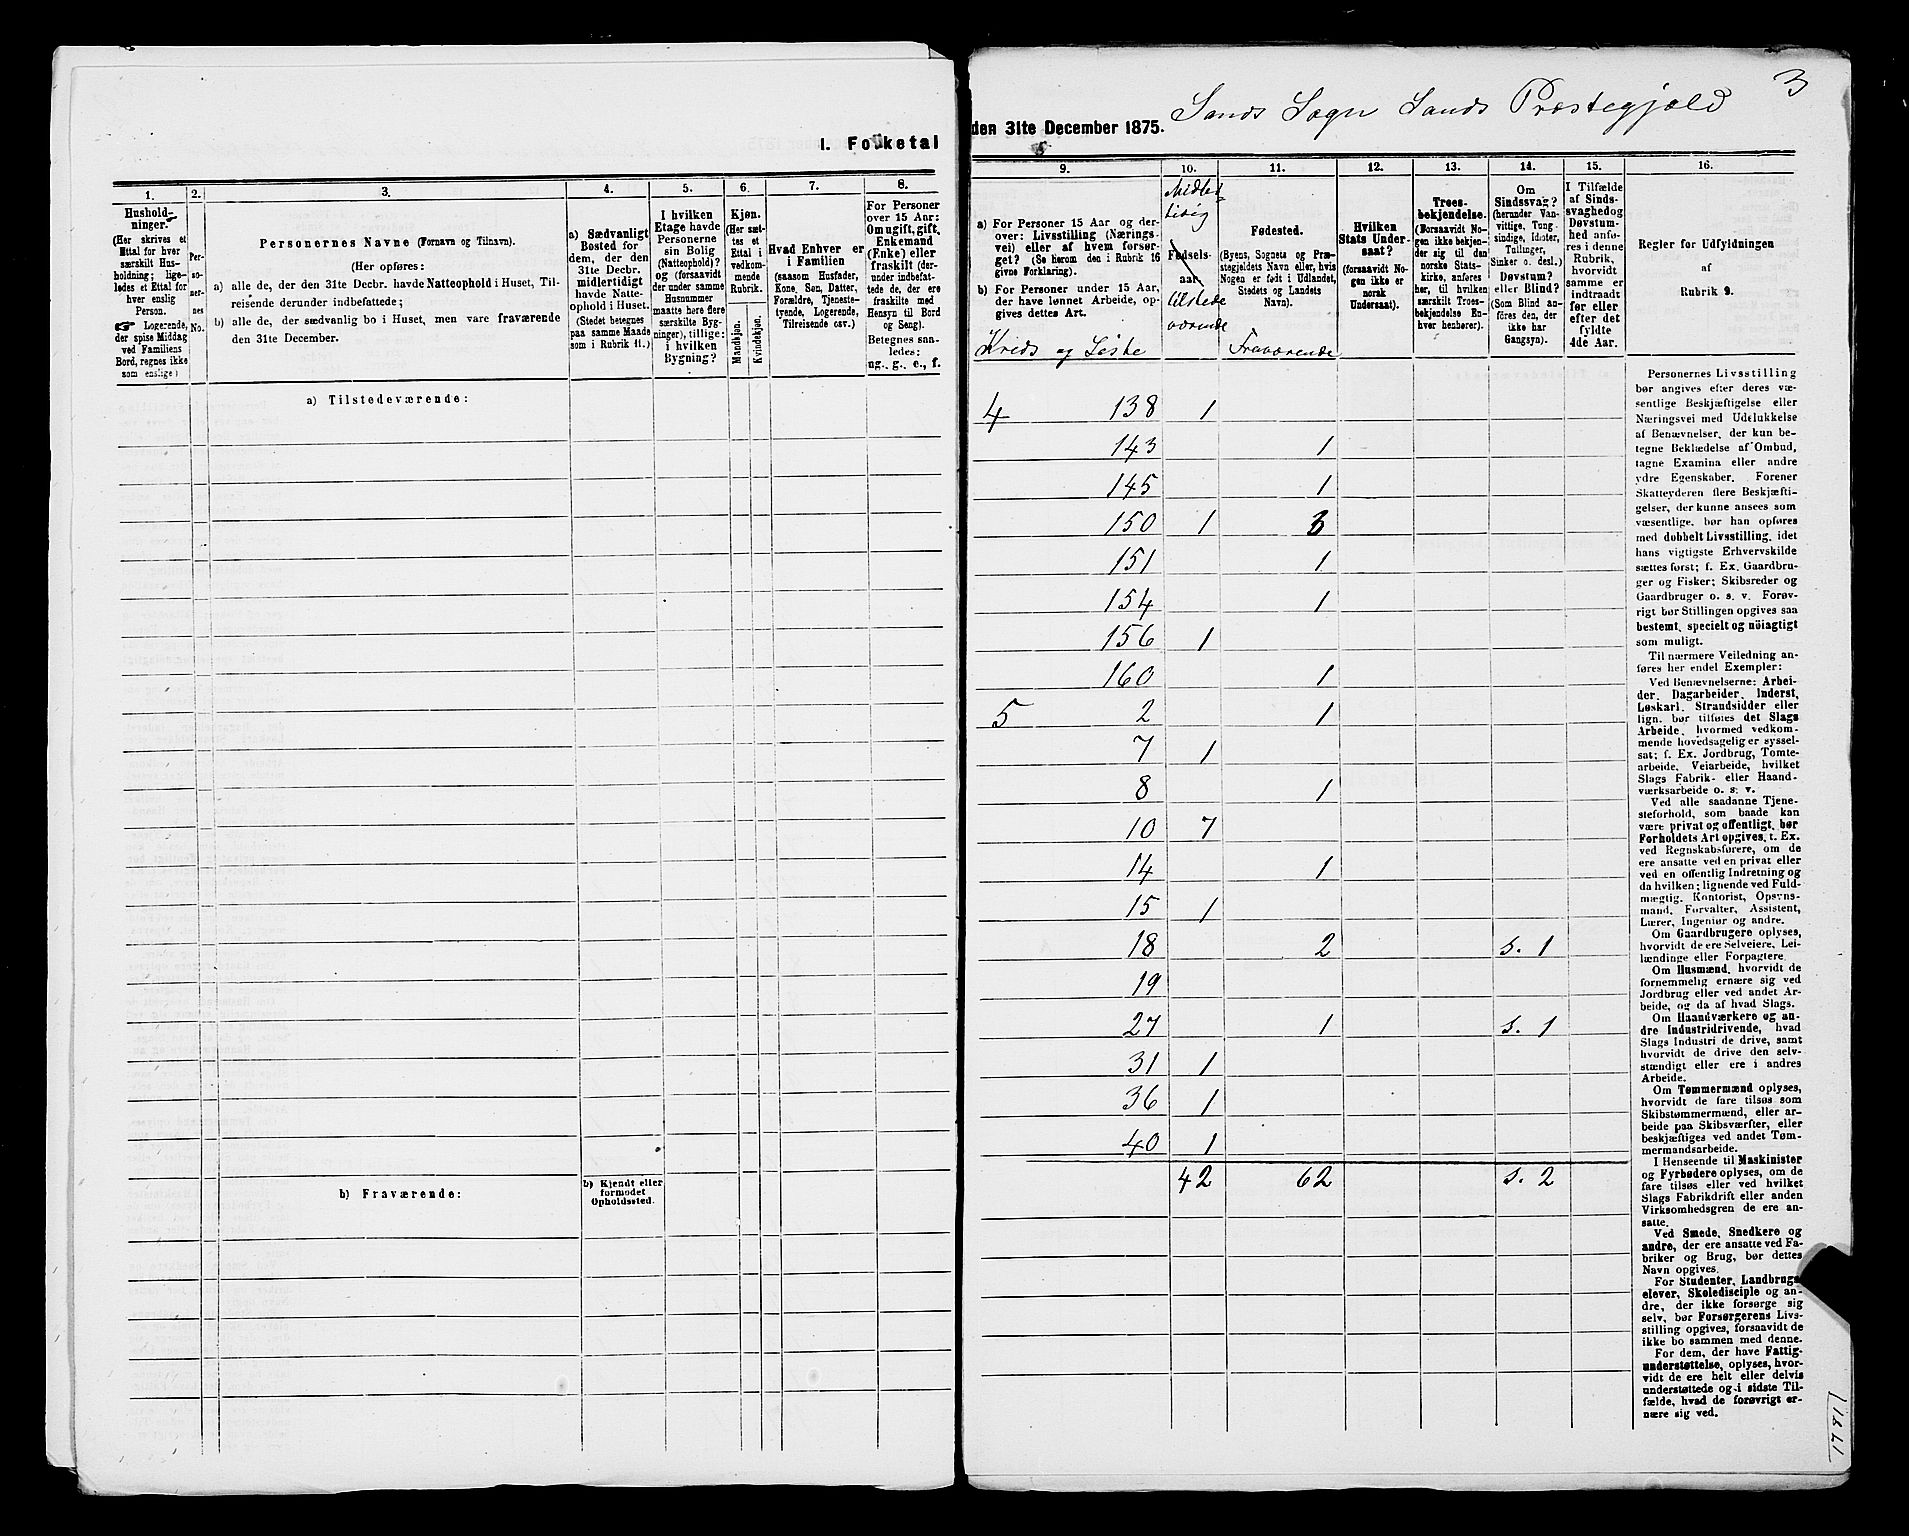 I. Folketal
1.
2.
3.
4.
5.
6.
7.
8.
Hushold-
ninger.
(Her skrives et
Ettal for hver
særskilt Hus-
holdning; lige-
ledes et Ettal for
hver enslig
Person.
☞ Logerende,
der spise Middag
ved Familiens
Bord, regnes ikke
som enslige)
Per-
so-
ner-
nes
No.
Personernes Navne (Fornavn og Tilnavn).
(Her opføres:
a) alle de, der den 31te Decbr. havde Natteophold i Huset, Til-
reisende derunder indbefattede;
b) alle de, der sædvanlig bo i Huset, men vare fraværende
den 31te December.
a) Sædvanligt
Bosted for
dem, der den
31te Decbr.
midlertidigt
havde Natte-
ophold i Huset.
(Stedet betegnes
paa samme Maade
som i Rubrik 11.)
I hvilken
Etage havde
Personerne
sin Bolig
(Natteophold)?
og (forsaavidt
der under samme
Husnummer
maatte høre flere
særskilte Byg-
ninger), tillige:
i hvilken
Bygning?
Kjøn.
(Her sæt-
tes et
Ettal i
vedkom-
mende
Rubrik.
Mandkjøn.
Kvindekjøn.
Hvad Enhver er
i Familien
(saasom Husfader,
Kone, Søn, Datter,
Forældre, Tjeneste-
tyende, Logerende,
Tilreisende osv.)
For Personer
over 15 Aar:
Om ugift, gift,
Enkemand
(Enke) eller
fraskilt (der-
under indbefat-
tede de, der ere
fraskilte med
Hensyn til Bord
og Seng).
Betegnes saa-
ledes:
ug., g., e., f.
a) Tilstedeværende:
b) Fraværende:
b) Kjendt eller
formodet
Opholdssted.
3
Sands Sogn Sands Præstegjæld
den 31te December 1875.
9.
10.
11.
12.
13.
14.
15.
16.
a) For Personer 15 Aar og der-
over: Livsstilling (Nærings-
vei) eller af hvem forsør-
get? (Se herom den i Rubrik 16
givne Forklaring).
b) For Personer under 15 Aar,
der have lønnet Arbeide, op-
gives dettes Art.
Kreds og Liste
Midler-
tidig
Fødsels-
aar.
tilstede
værende
Fødested.
(Byens, Sognets og Præ-
stegjeldets Navn eller, hvis
Nogen er født i Udlandet,
Stedets og Landets
Navn).
Fraværende
Hvilken
Stats Under-
saat?
(forsaavidt No-
gen ikke er
norsk
Undersaat).
Troes-
bekjendelse.
(Forsaavidt No-
gen ikke bekjen-
der sig til den
norske Stats-
kirke, anføres
her, til hvilken
særskilt Troes-
bekjendelse En-
hver henhører).
Om
Sindssvag?
(herunder Van-
vittige, Tung-
sindige, Idioter,
Tullinger,
Sinker o. desl.)
Døvstum?
eller Blind?
(Som Blind an-
føres den, der
ikke har
Gangsyn).
I Tilfælde
af Sinds-
svaghed og
Døvstum-
hed anfø-
res i denne
Rubrik,
hvorvidt
samme er
indtraadt
før eller
efter det
fyldte
4de Aar.
Regler for Udfyldningen
af
Rubrik 9.
4 138 1
143 1
145 1
150 1 3
151 1
154 1
156 1
160 1
5 2 1
7 1
8 1
10 7
14 1
15 1
18 2 S. 1
19
27 1 S. 1
31 1
36 1
40 1
42 62 S. 2
Personernes Livsstilling
bør angives efter deres væ-
sentlige Beskjæftigelse eller
Næringsvei med Udelukkelse
af Benævnelser, der kun be-
tegne Beklædelse af Ombud,
tagne Examina eller andre
ydre Egenskaber. Forener
Skatteyderen flere Beskjæfti-
gelser, der kunne ansees som
væsentlige, bør han opføres
med dobbelt Livsstilling, idet
hans vigtigste Erhvervskilde
sættes først; f. Ex. Gaardbru-
ger og Fisker; Skibsreder og
Gaardbruger o. s. v. Forøv-
rigt bør Stillingen opgives saa
bestemt, specielt og nöiagtigt
som muligt.
Til nærmere Veiledning an-
føres her endel Exempler:
Ved Benævnelserne: Arbei-
der, Dagarbeider, Inderst,
Løskarl, Strandsidder eller
lign. bør tilføies det Slags
Arbeide, hvormed vedkom-
mende hovedsagelig er syssel-
sat; f. Ex. Jordbrug, Tomte-
arbeide, Veiarbeide, hvilket
Slags Fabrik- eller Haand-
værksarbeide o. s. v.
Ved alle saadanne Tjene-
steforhold, som baade kan
være privat og offentligt, bør
Forholdets Art opgives, t. Ex.
ved Regnskabsførere, om de
ere ansatte ved en privat eller
ved en offentlig Indretning og
da hvilken; lignende ved Fuld-
mægtig, Kontorist, Opsyns-
mand, Forvalter, Assistent,
Lærer, Ingeniør og andre.
Om Gaardbrugere oplyses,
hvorvidt de ere Selveiere, Lei-
lændinge eller Forpagtere.
Om Husmænd, hvorvidt de
fornemmelig ernære sig ved
Jordbrug eller ved andet Ar-
beide, og da af hvad Slags.
Om Haandværkere og an-
dre Industridrivende, hvad
Slags Industri de drive, samt
hvorvidt de drive den selv-
stændigt eller ere i andres
Arbeide.
Om Tømmermænd oplyses,
hvorvidt de fare tilsøs som
Skibstømmermænd, eller ar-
beide paa Skibsværfter, eller
beskjæftiges ved andet Tøm-
mermandsarbeide.
I Henseende til Maskinister
og Fyrbødere oplyses, om de
fare tilsøs eller ved hvilket
Slags Fabrikdrift eller anden
Virksomhedsgren de ere an-
satte.
Ved Smede, Snedkere og
andre, der ere ansatte ved Fa-
briker og Brug, bør dettes
Navn opgives.
For Studenter, Landbrugs-
elever, Skoledisciple og an-
dre, der ikke forsørge sig
selv, bør Forsørgerens Livs-
stilling opgives, forsaavidt de
ikke bo sammen med denne.
For dem, der have Fattig-
understøttelse, oplyses, hvor-
vidt de ere helt eller delvis
understøttede og i sidste Til-
fælde, hvad de forøvrigt er-
nære sig ved.